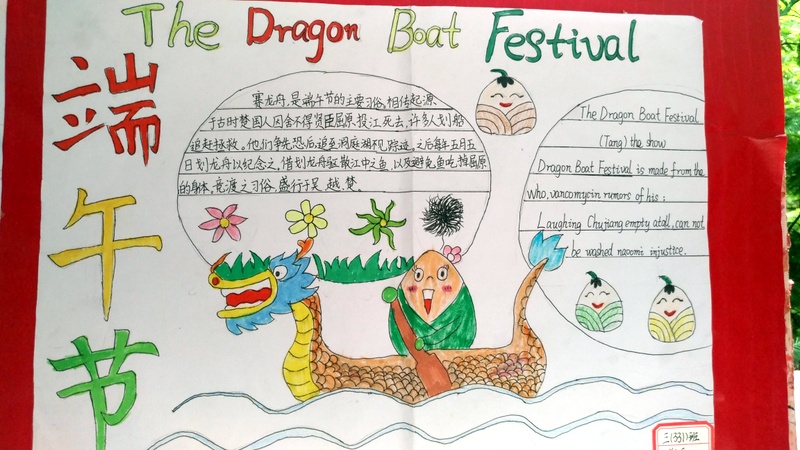 The Dragon Boat Festival
端午节
赛龙舟,是端午节的主要习俗,相传起源
于古时楚国人因舍不得贤臣屈原投江死去,许多人划船
追赶拯救。他们争先恐后,追至洞庭湖不见踪迹,之后每年五月五
日划龙舟以纪念之。借划龙舟驱散江中之鱼,以及避免鱼吃掉屈原
的身体,竞渡之习俗,盛行于吴、越、楚。
The Dragon Boat Festival
(Tang) the show
Dragon Boat Festival is made from the
who, vancomycin rumors of his;
Laughing Chujiang empty atall, can not
be washed naoomi injustice.
三(331)班